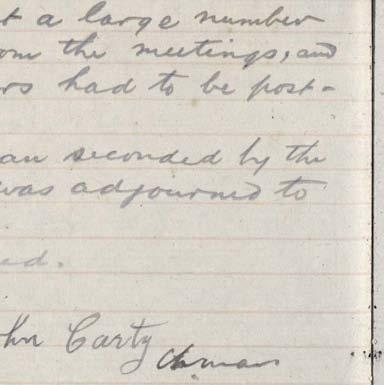 t a large number
om the meetings, and
rs had to be post-
an seconded by the
was adjourned to
ed.
hn Carty Chman